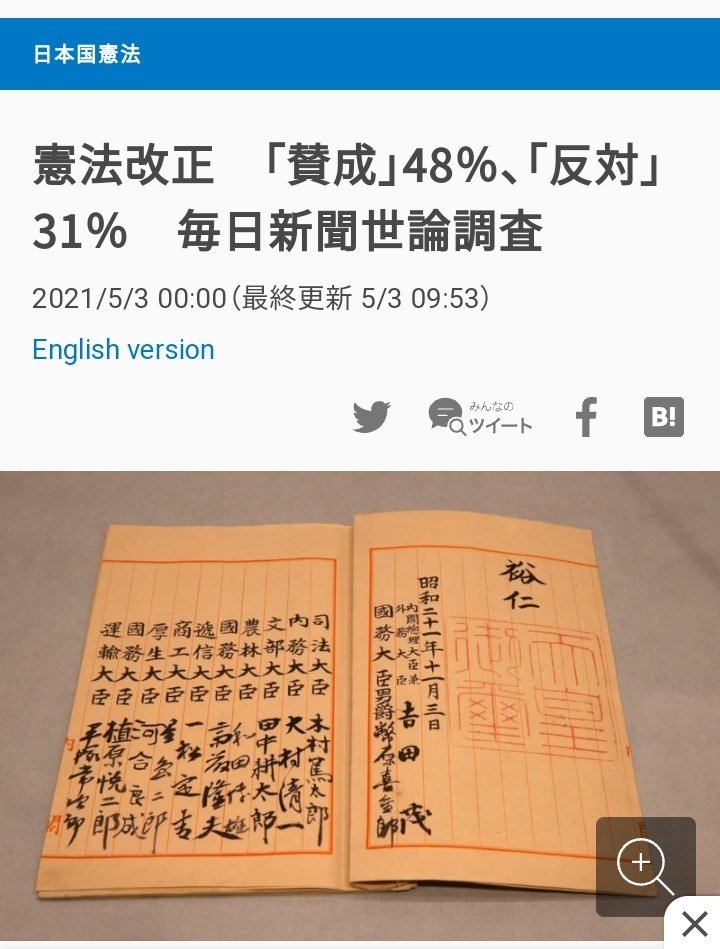 日本国憲法
憲法改正　「賛成」48%、「反対」
31%　毎日新聞世論調査
2021/5/3 00:00（最終更新 5/3 09:53）
English version
みんなの
ツイート
B!
裕仁
昭和二十一年十一月三日
内閣總理大臣兼
外務大臣
吉田茂
國務大臣男爵幣原喜重郎
司法大臣木村篤太郎
内務大臣大村清一
文部大臣田中耕太郎
農林大臣和田博雄
國務大臣斎藤隆夫
遞信大臣一松定吉
商工大臣星島二郎
厚生大臣河合良成
國務大臣植原悦二郎
運輸大臣平塚常次郎